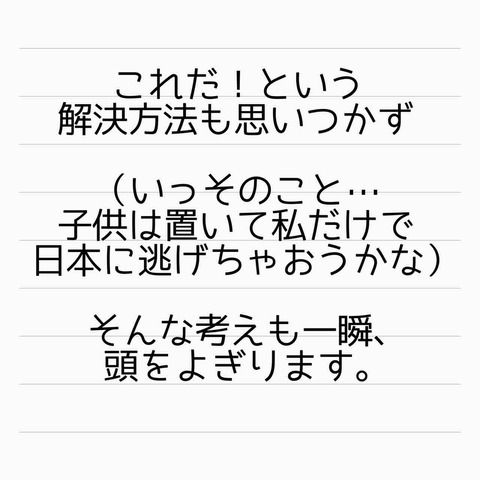 これだ！という
解決方法も思いつかず
（いっそのこと…
子供は置いて私だけで
日本に逃げちゃおうかな）
そんな考えも一瞬、
頭をよぎります。